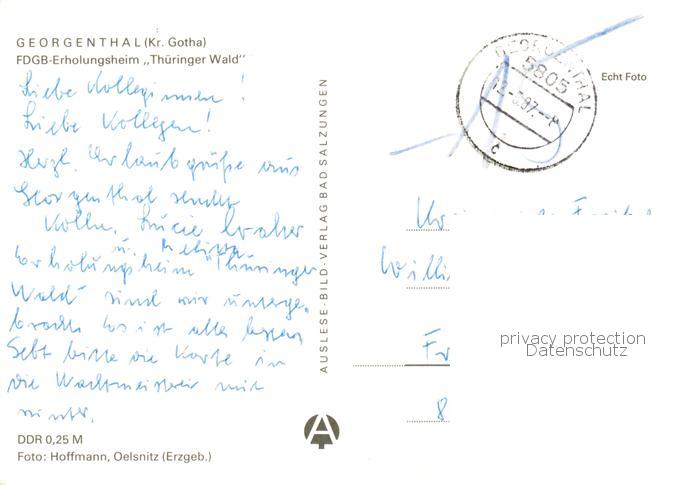 GEORGENTHAL (Kr. Gotha)
FDGB-Erholungsheim „Thüringer Wald"
Liebe Kolleginnen!
Liebe Kollegen!
Herzl. Urlaubsgrüße aus
Georgenthal sendet
Kolln. Lucie
u.
Erholungsheim "Thüringer
Wald" sind wir unterge-
bracht. Es ist alles bestens
Gebt bitte die Karte in
die Wachtmeisterei mit
runter.
DDR 0,25 M
Foto: Hoffmann, Oelsnitz (Erzgeb.)
AUSLESE-BILD-VERLAG BAD SALZUNGEN
GEORGENTHAL
5805
c
Echt Foto
Willi
Fr
8
privacy protection
Datenschutz